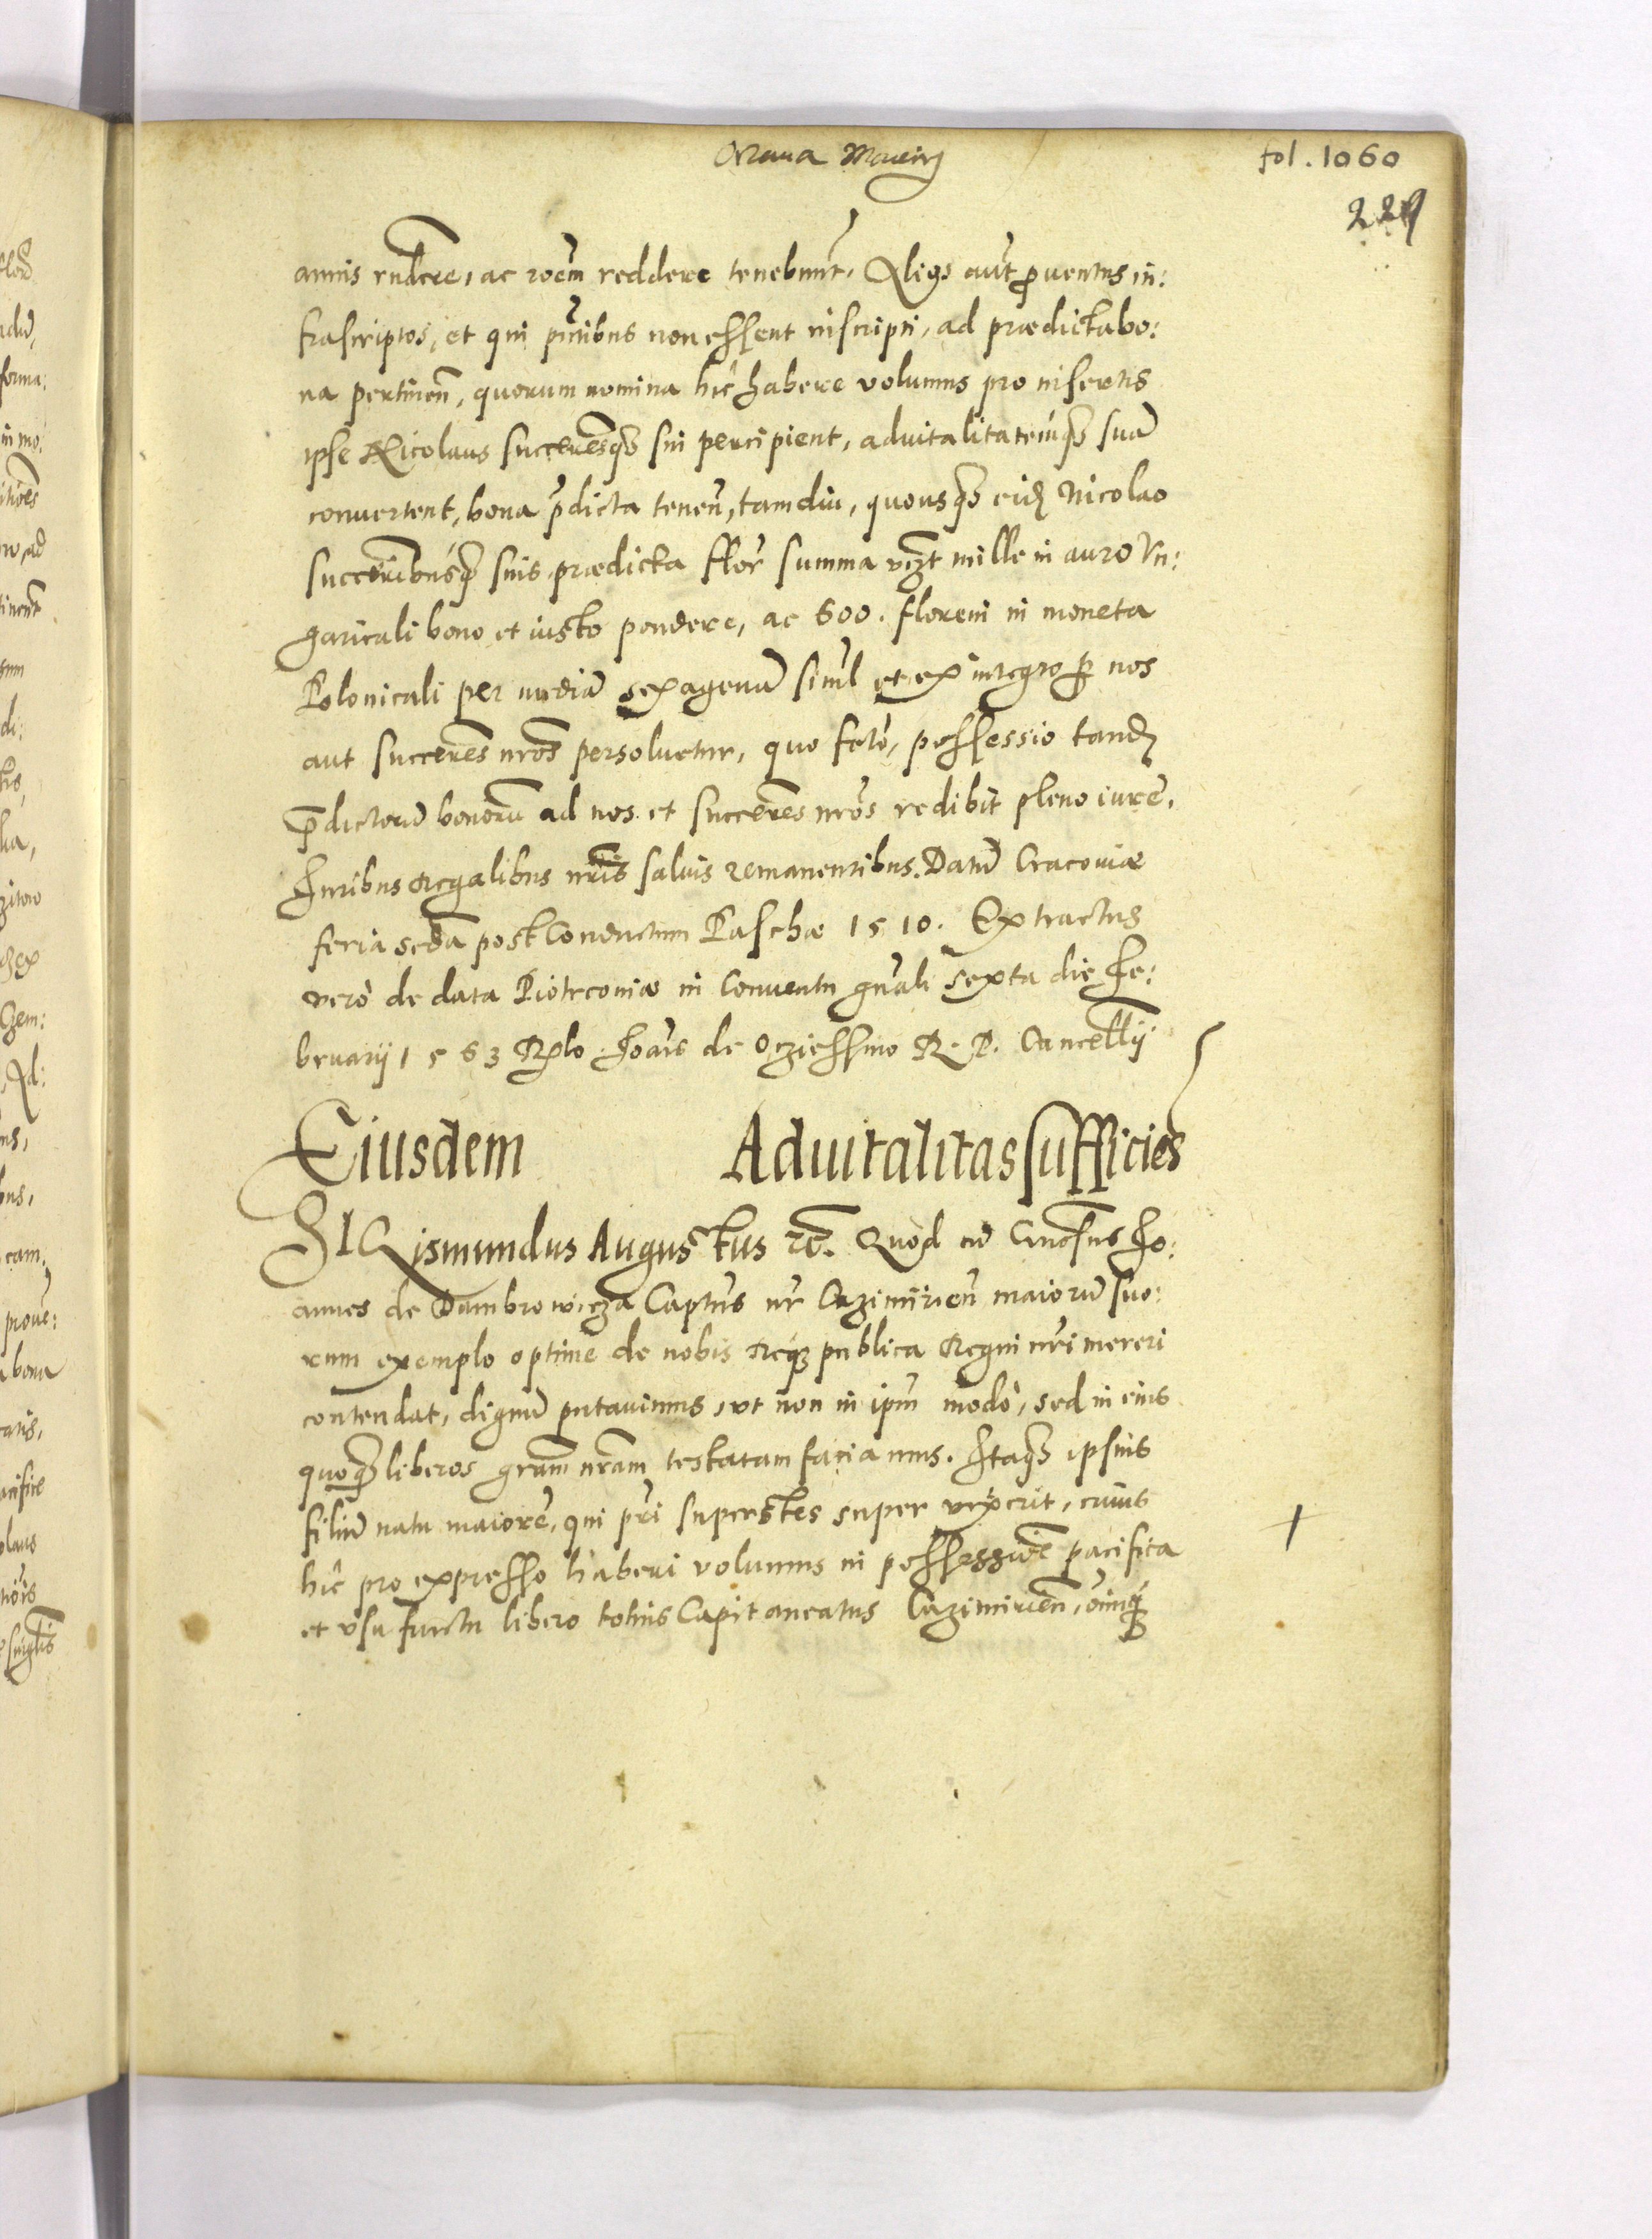 fol. 1060
229
annis rndere, ac roem reddere tenebunt. Alios aut proventus in:
frascriptos, et qui pntibus non essent inscripti, ad prædicta bo:
na pertinen, quorum nomina hic habere volumus pro insertis
ipse Nicolaus succeresq sui percipient, advitalitatemq suã
convertent, bona pdicta tenen, tamdiu, quousq eid Nicolao
succeribusq suis prædicta flor summa vczt mille in auro Vn:
garicali bono et iusto pondere, ac 600. floreni in moneta
Polonicali per mediã sexagenã simul et ex integro p nos
aut succeres nros persoluetur, quo fcto, possessio tand
pdictorũ bonorũ ad nos et succeres nros redibit pleno iure,
Iuribus Regalibus nris salvis remanentibus. Datũ Cracoviæ
feria scda post Conductum Paschæ 1510. Extractus
vero de data Piotrcoviæ in Conventu gnali sexta die Fe:
bruarij 1563 Rplo Ioãis de Oczieschno R. P. Cancellij
Eiusdem Advitalitas sufficies
SIGismundus Augustus rc. Quod cũ Gnosus Io:
annes de Dambrowicza Captus nr Cazimirien maiorũ suo:
rum exemplo optime de nobis Req publica Regni nri mereri
contendat, dignũ putavimus, ut non in ipm modo, sed in eius
quoq liberos gram nram testatam faciamus. Itaq ipsius
filiũ natu maiorẽ, qui pri superstes super vixerit, cuius
hic pro expresso haberi volumus in possessione pacifica
et usu fructu libero totius Capitaneatus Cazimirien, oiniq